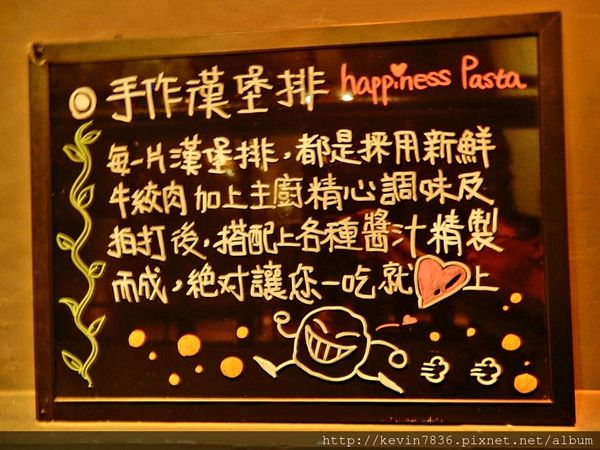 手作漢堡排 happiness Pasta
每一片漢堡排，都是採用新鮮
牛絞肉加上主廚精心調味及
拍打後，搭配上各種醬汁精製
而成，絕对讓您一吃就♡上
http://kevin7836.pixnet.net/album